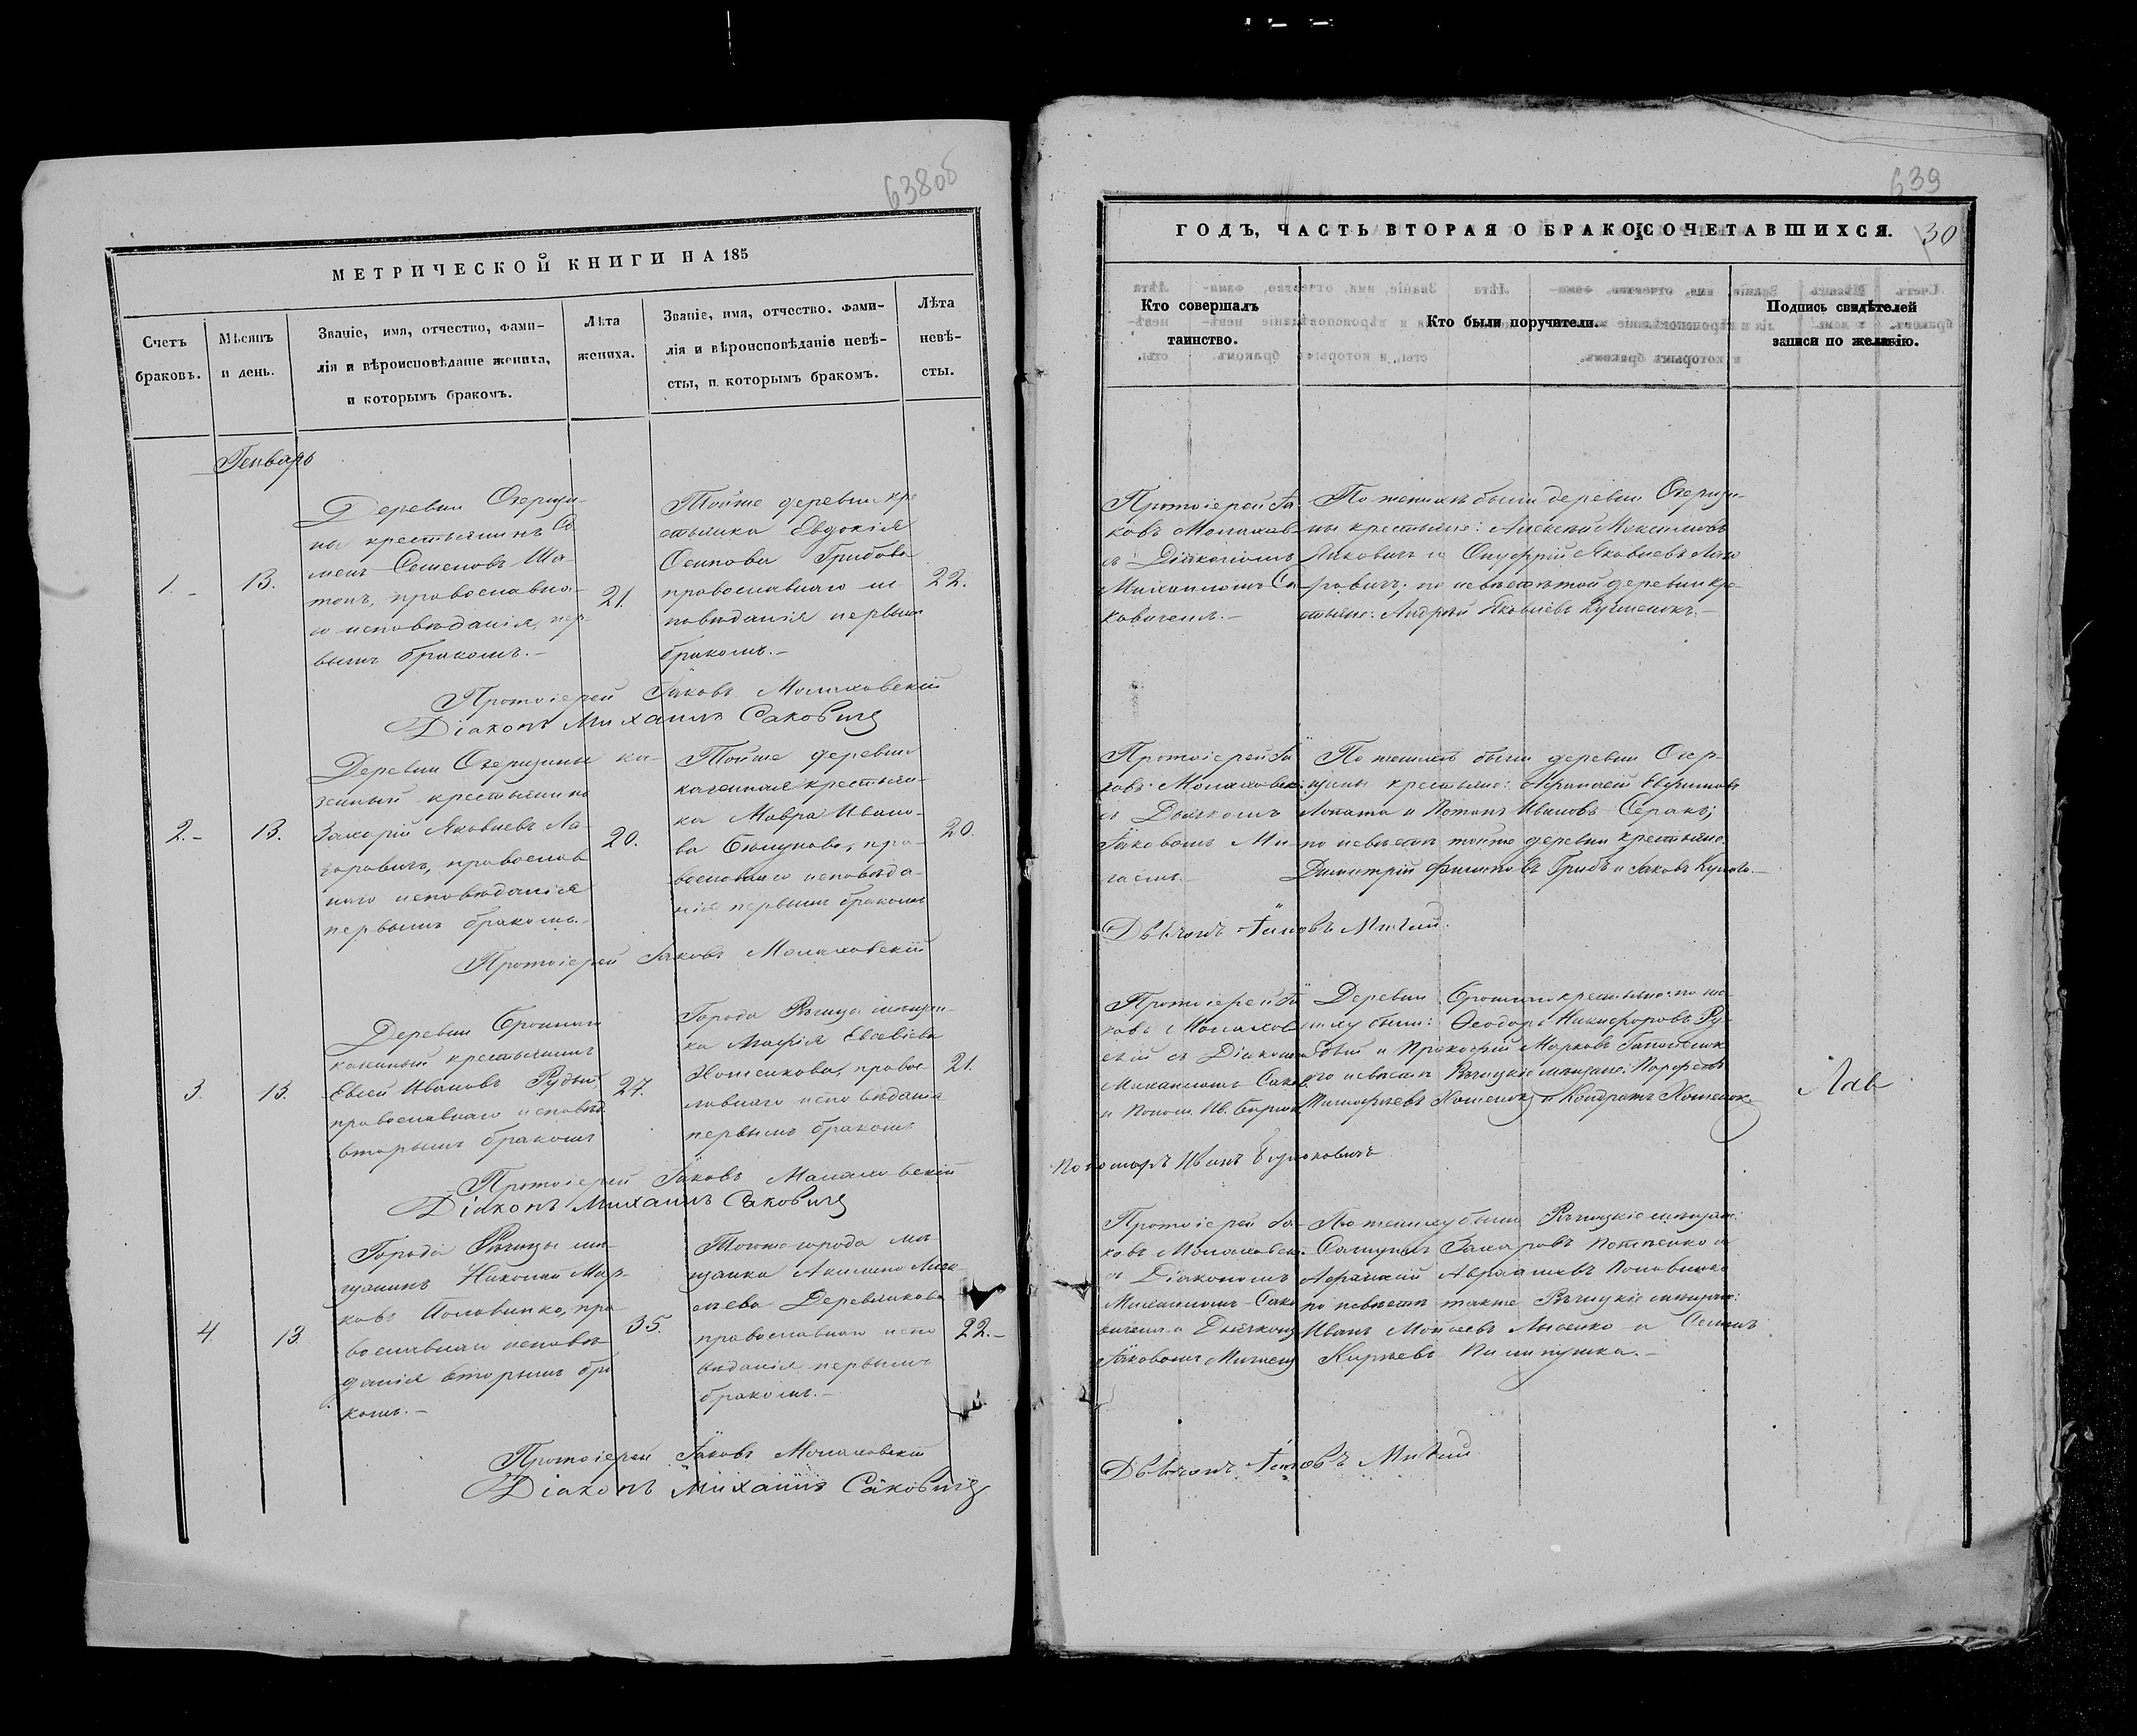 638об
МЕТРИЧЕСКОЙ КНИГИ НА 185
Счетъ
браковъ.
Мѣсяцъ
и день.
Званіе, имя, отчество, фами-
лія и вѣроисповѣданіе жениха,
и которымъ бракомъ.
Лѣта
жениха.
Званіе, имя, отчество. фами-
лія и вѣроисповѣданіе невѣ-
сты, и которымъ бракомъ.
Лѣта
невѣ-
сты.
Генварь
1.
13.
Деревни Озерщи-
ны крестьянинъ Се
менъ Семеновъ Ша-
тонъ, православна-
го исповѣданія, пер-
вымъ бракомъ.-
21.
Тойже деревни кре
стьянка Евдокія
Осипова Грибова
православнаго ис
повѣданія первым
бракомъ.-
22.
Протоіерей Іаковъ Малаховскій
Діаконъ Михаилъ Саковичъ
2.-
13.
Деревни Озерщины ка-
зенный крестьянинъ
Захарій Яковлевъ Ла-
заровичъ, православ
наго исповѣданія
первымъ бракомъ.-
20.
Тойже деревни
казенная крестьян-
ка Мавра Ивано-
ва, пра-
вославнаго исповѣда-
нія первымъ бракомъ
20.
Протоіерей Іаковъ Малаховскій
3.
13.
Деревни
казенный крестьянинъ
Евсей Ивановъ Рудый
православнаго исповѣд
вторымъ бракомъ
27.
Города Рѣчица мѣщан-
ка Марія Евсѣева
Хоменкова, правос-
лавнаго исповѣданія
первымъ бракомъ
21.
Протоіерей Іаковъ Малаховскій
Діаконъ Михаилъ Саковичъ
4.
13
Города Рѣчицы мѣ-
щанинъ Николай Мар-
ковъ Половинко, пра-
вославнаго исповѣ-
данія вторымъ бра
комъ.-
35.
Тогоже города мѣ-
щанка Алек-
сѣева Деревянкова
православнаго испо
вѣданія первымъ
бракомъ.-
22.-
Протоіерей Іаковъ Малаховскій
Діаконъ Михаилъ Саковичъ
639
ГОДЪ, ЧАСТЬ ВТОРАЯ О БРАКОСОЧЕТАВШИХСЯ.
30
Кто совершалъ
таинство.
Кто были поручители.
Подпись свидѣтелей
записи по желанію.
Протоіерей Іа-
ковъ Малахов-
съ Діакономъ
Михаиломъ Са
ковичемъ.-
По женихѣ были деревни Озерщи-
ны крестьяне: Алексѣй Максимовъ
и Онуфрій Яковлевъ Лаза
ровичъ; по невѣстѣ той деревни кре
стьяне: Андрей Яковлевъ
Протоіерей Іа
ковъ Малаховск:
съ Дьячкомъ
Іаковомъ Ми-
гаемъ.-
По женихѣ были деревни Озер-
щины крестьяне: Афанасій Евфимовъ
Лопата и Потапъ Ивановъ Серакъ;
по невѣстѣ тойже деревни крестьяне
Димитрій Филиповъ Грибъ и Іаковъ
Дьячокъ Іаковъ Мигай.
Протоіерей Іа
ковъ Малахов
скій съ Діакономъ
Михаиломъ Саков.
и Поном. Ив. Бирюк
Деревни крестьяне: по же-
ниху были: Ѳеодоръ Никифоровъ Ру-
дый и Прокофій Марковъ
по невѣстѣ Рѣчицкіе мѣщане: Парфенъ
Тимофѣевъ Хоменокъ и Кондратъ Хоменокъ
Пономарь Иванъ Бирюковичъ
Протоіерей Іа-
ковъ Малаховск:
съ Діакономъ
Михаиломъ Сако
вичемъ и Дьячкомъ
Іаковомъ Мигаемъ
По жениху были Рѣчицкіе мѣщане:
Самуилъ Захаровъ Потапенко и
Афанасій Авраамовъ Половинко
по невѣстѣ также Рѣчицкіе мѣщане:
Иванъ Моисеевъ Лысенко и Семенъ
Кирѣевъ
Дьячокъ Іаковъ Мигай